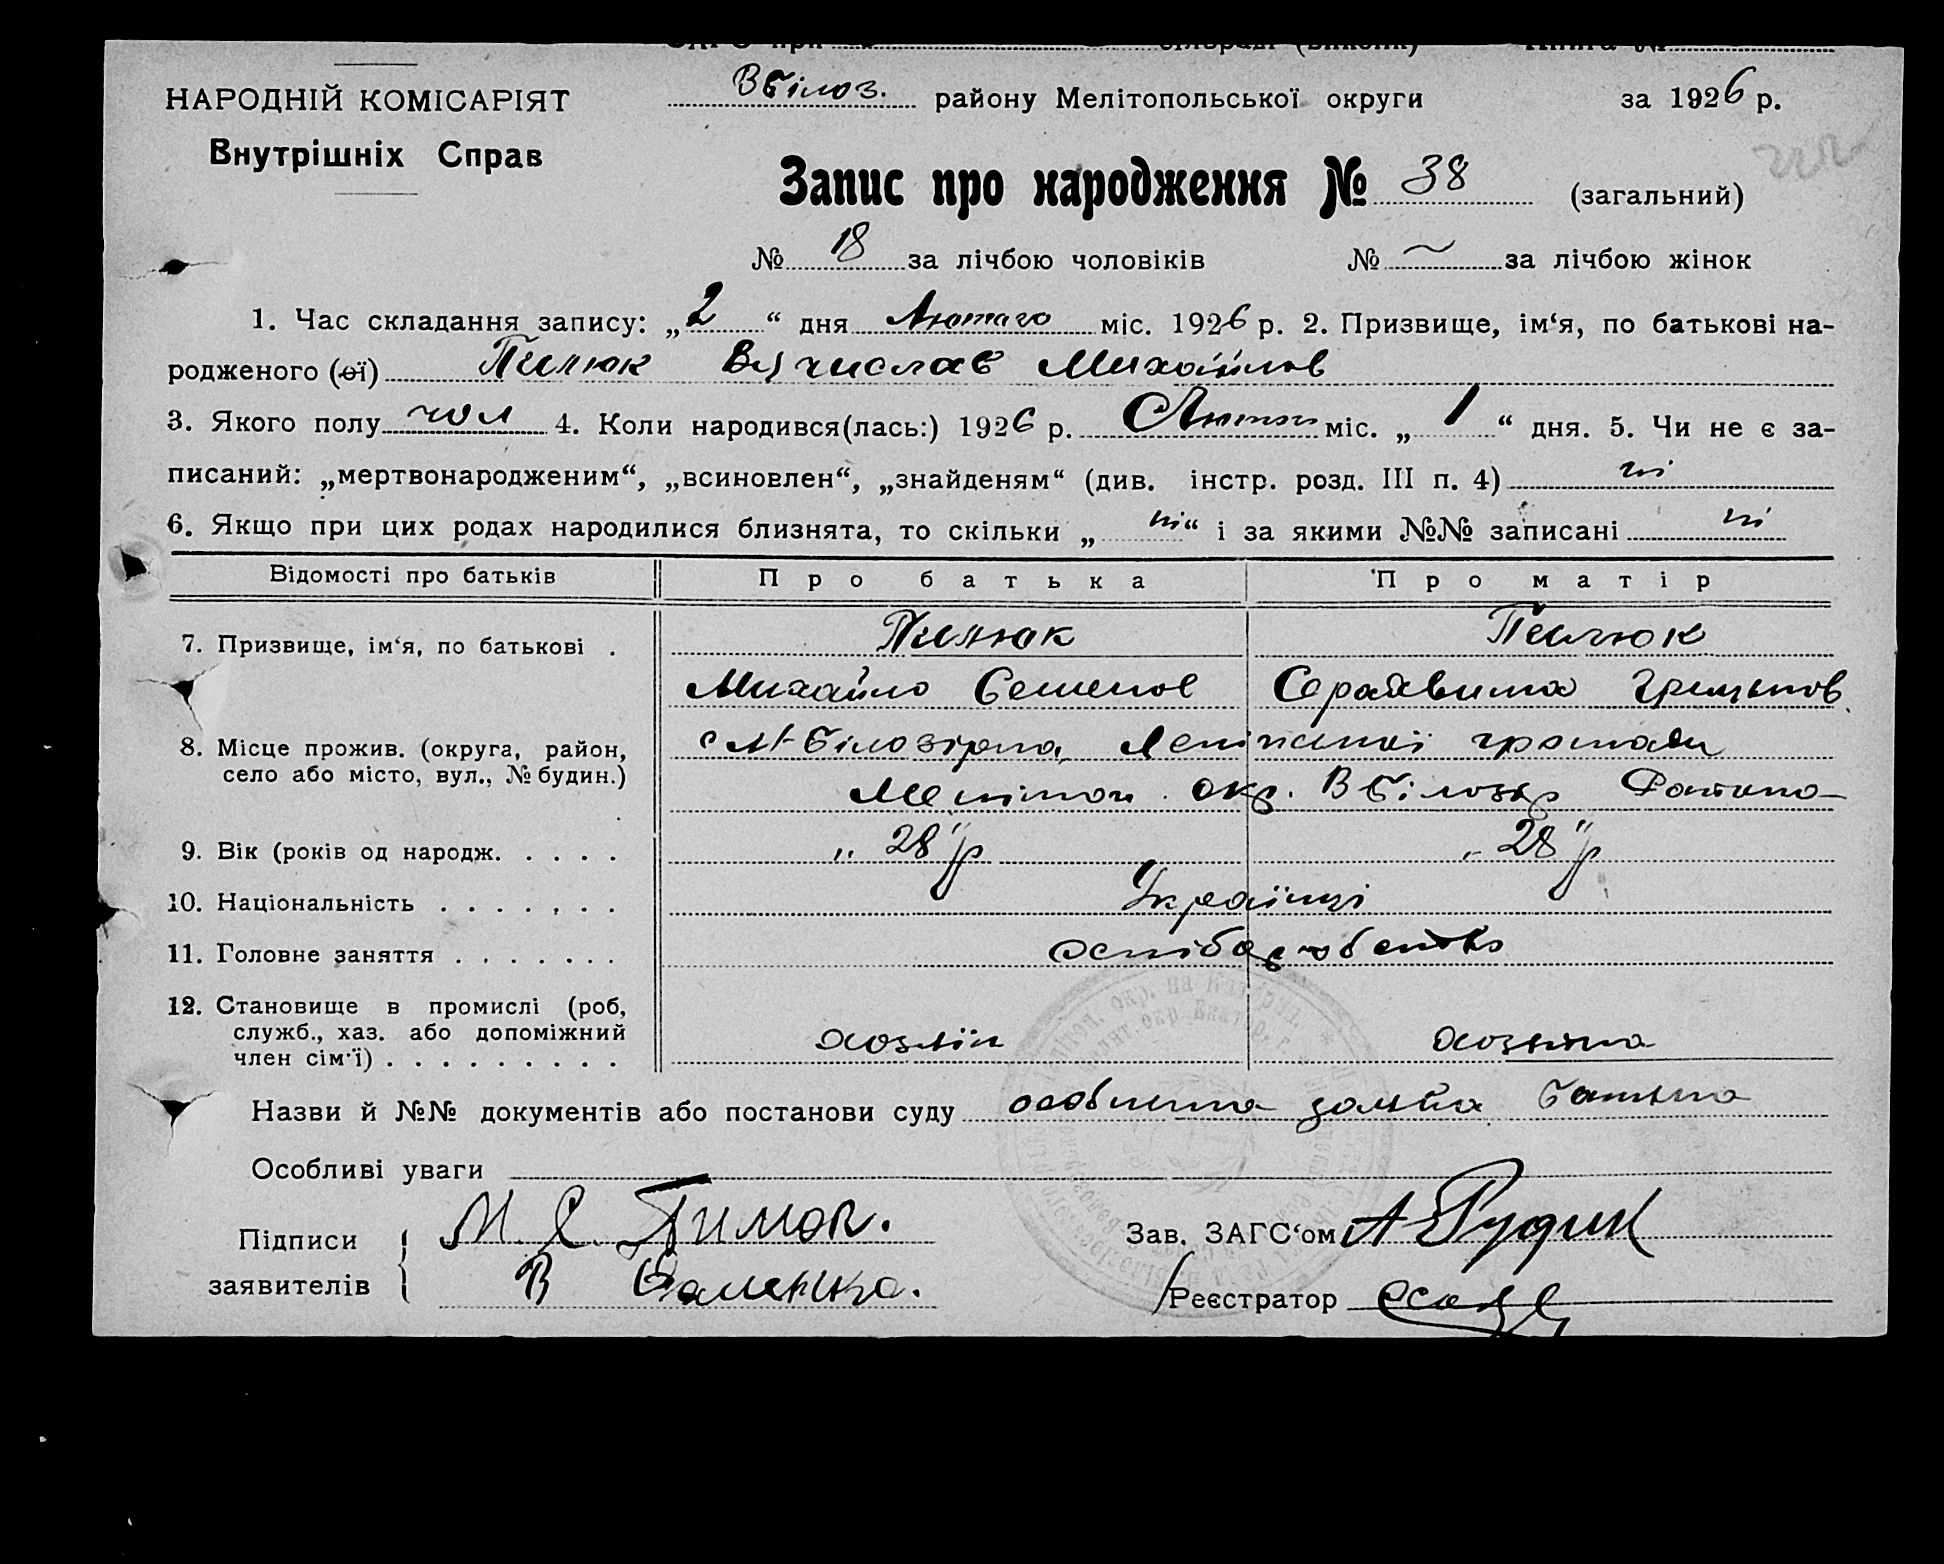 ВБілоз. району Мелітопольської округи за 1926 р.
НАРОДНІЙ КОМІСАРІЯТ
Внутрішніх Справ
Запис про народження № 38 (загальний)
№ 18 за лічбою чоловіків № — за лічбою жінок
1. Час складання запису: „2“ дня Лютаго міс. 1926 р. 2. Призвище, ім‘я, по батькові на-
родженого (ої) Пилюк Вячислав Михайлов
3. Якого полу чол 4. Коли народився(лась:) 1926 р. Лютого міс. „1“ дня. 5. Чи не є за-
писаний: „мертвонародженим“, „всиновлен“, „знайденям“ (див. інстр. розд. III п. 4) ні
6. Якщо при цих родах народилися близнята, то скільки „ні“ і за якими №№ записані ні
Відомості про батьків Про батька Про матір
7. Призвище, ім‘я, по батькові . Пилюк Пилюк
Михайло Семенов
8. Місце прожив. (округа, район, село або місто, вул., № будин.) Білозірка, громади
Мелітоп. окр. ВБілозір
9. Вік (років од народж. . . . . „28“ р „28“ р
10. Національність . . . . . . . Українці
11. Головне заняття . . . . . . .
12. Становище в промислі (роб,
служб., хаз. або допоміжний
член сім‘ї) . . . . . . . . . хозяїн хозяїка
Назви й №№ документів або постанови суду особиста заява батька
Особливі уваги
Підписи М. С.
заявителів В
Зав. ЗАГС‘ом А Рудик
Реєстратор